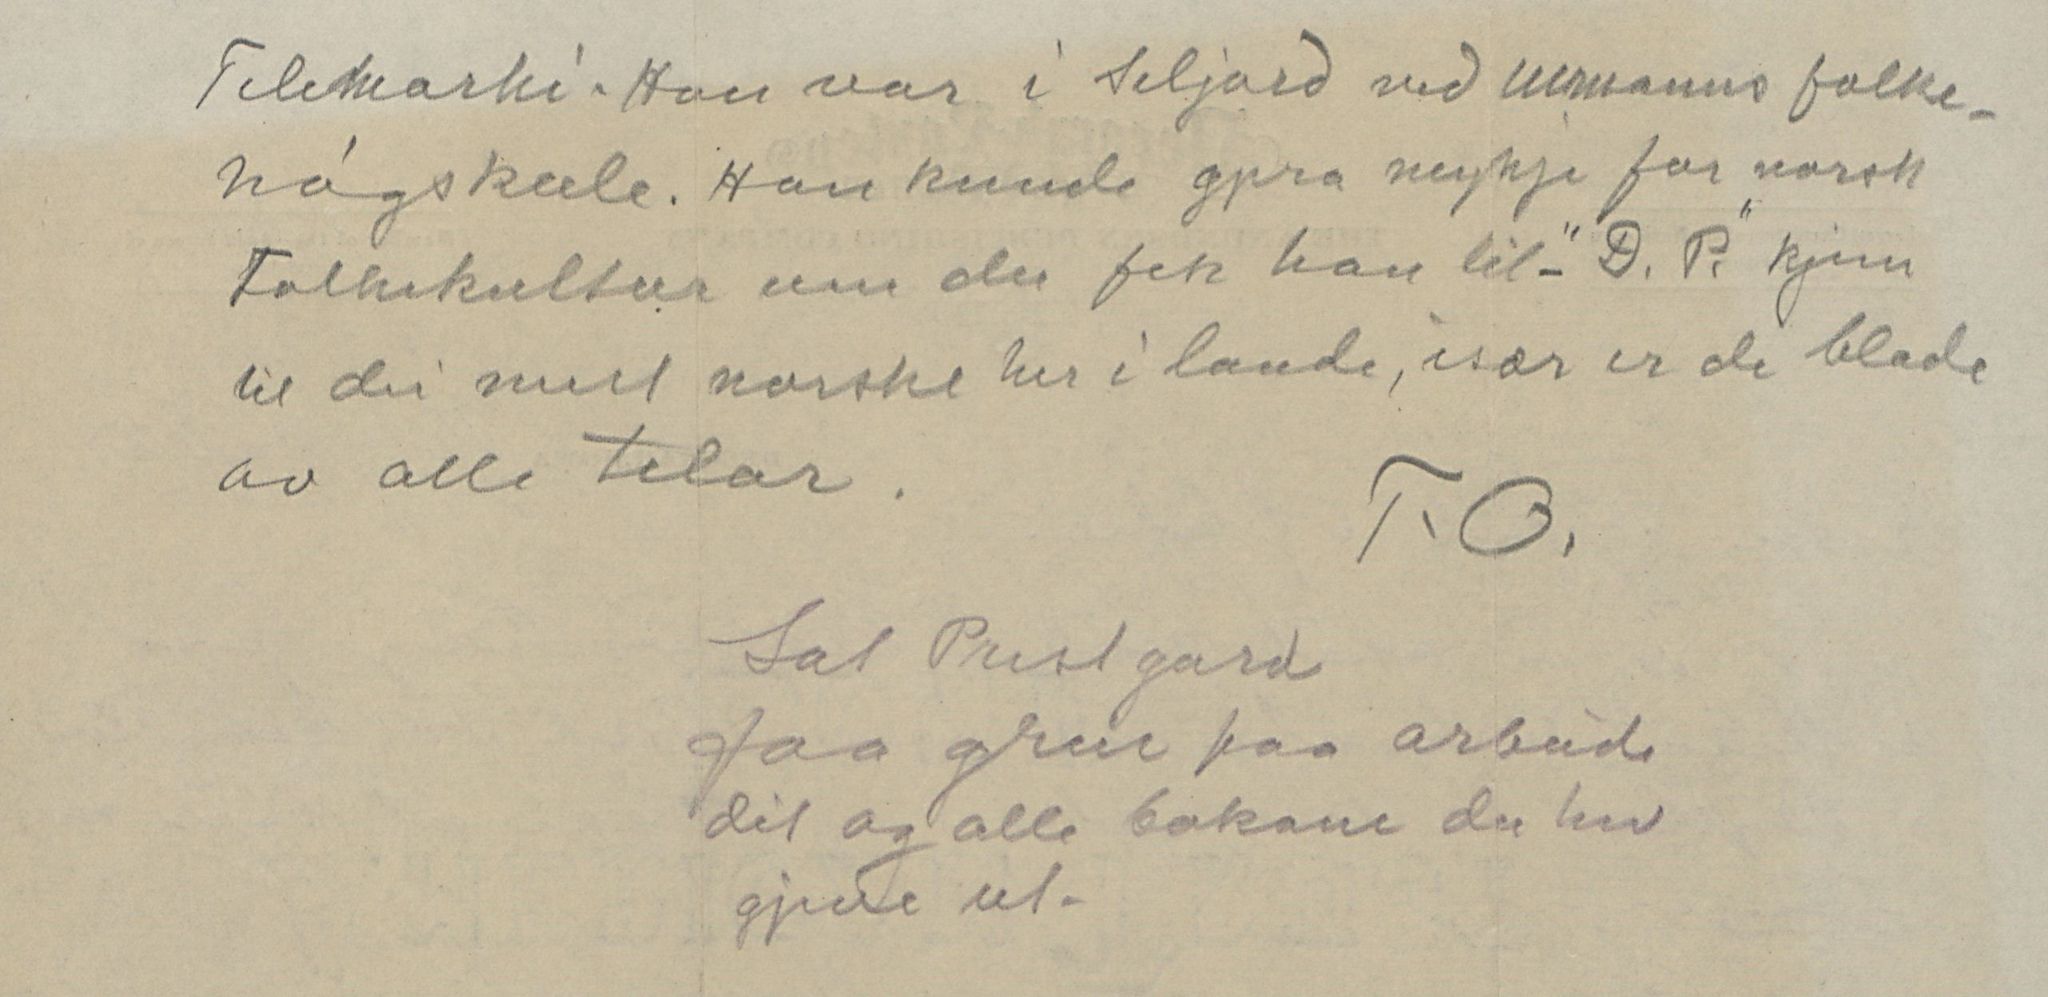 Telemarki. Han var i Seljord ved Ullmanns folke-
högskule. Han kunde gjøra mykje for norsk
Folkekultur um du fek han til - "D. P." kjem
til dei mest norske her i lande, især er de blade
av alle telar.
T. O.
Lat Prestgard
faa greie paa arbeide
dit og alle bokane du hev
gjeve ut.